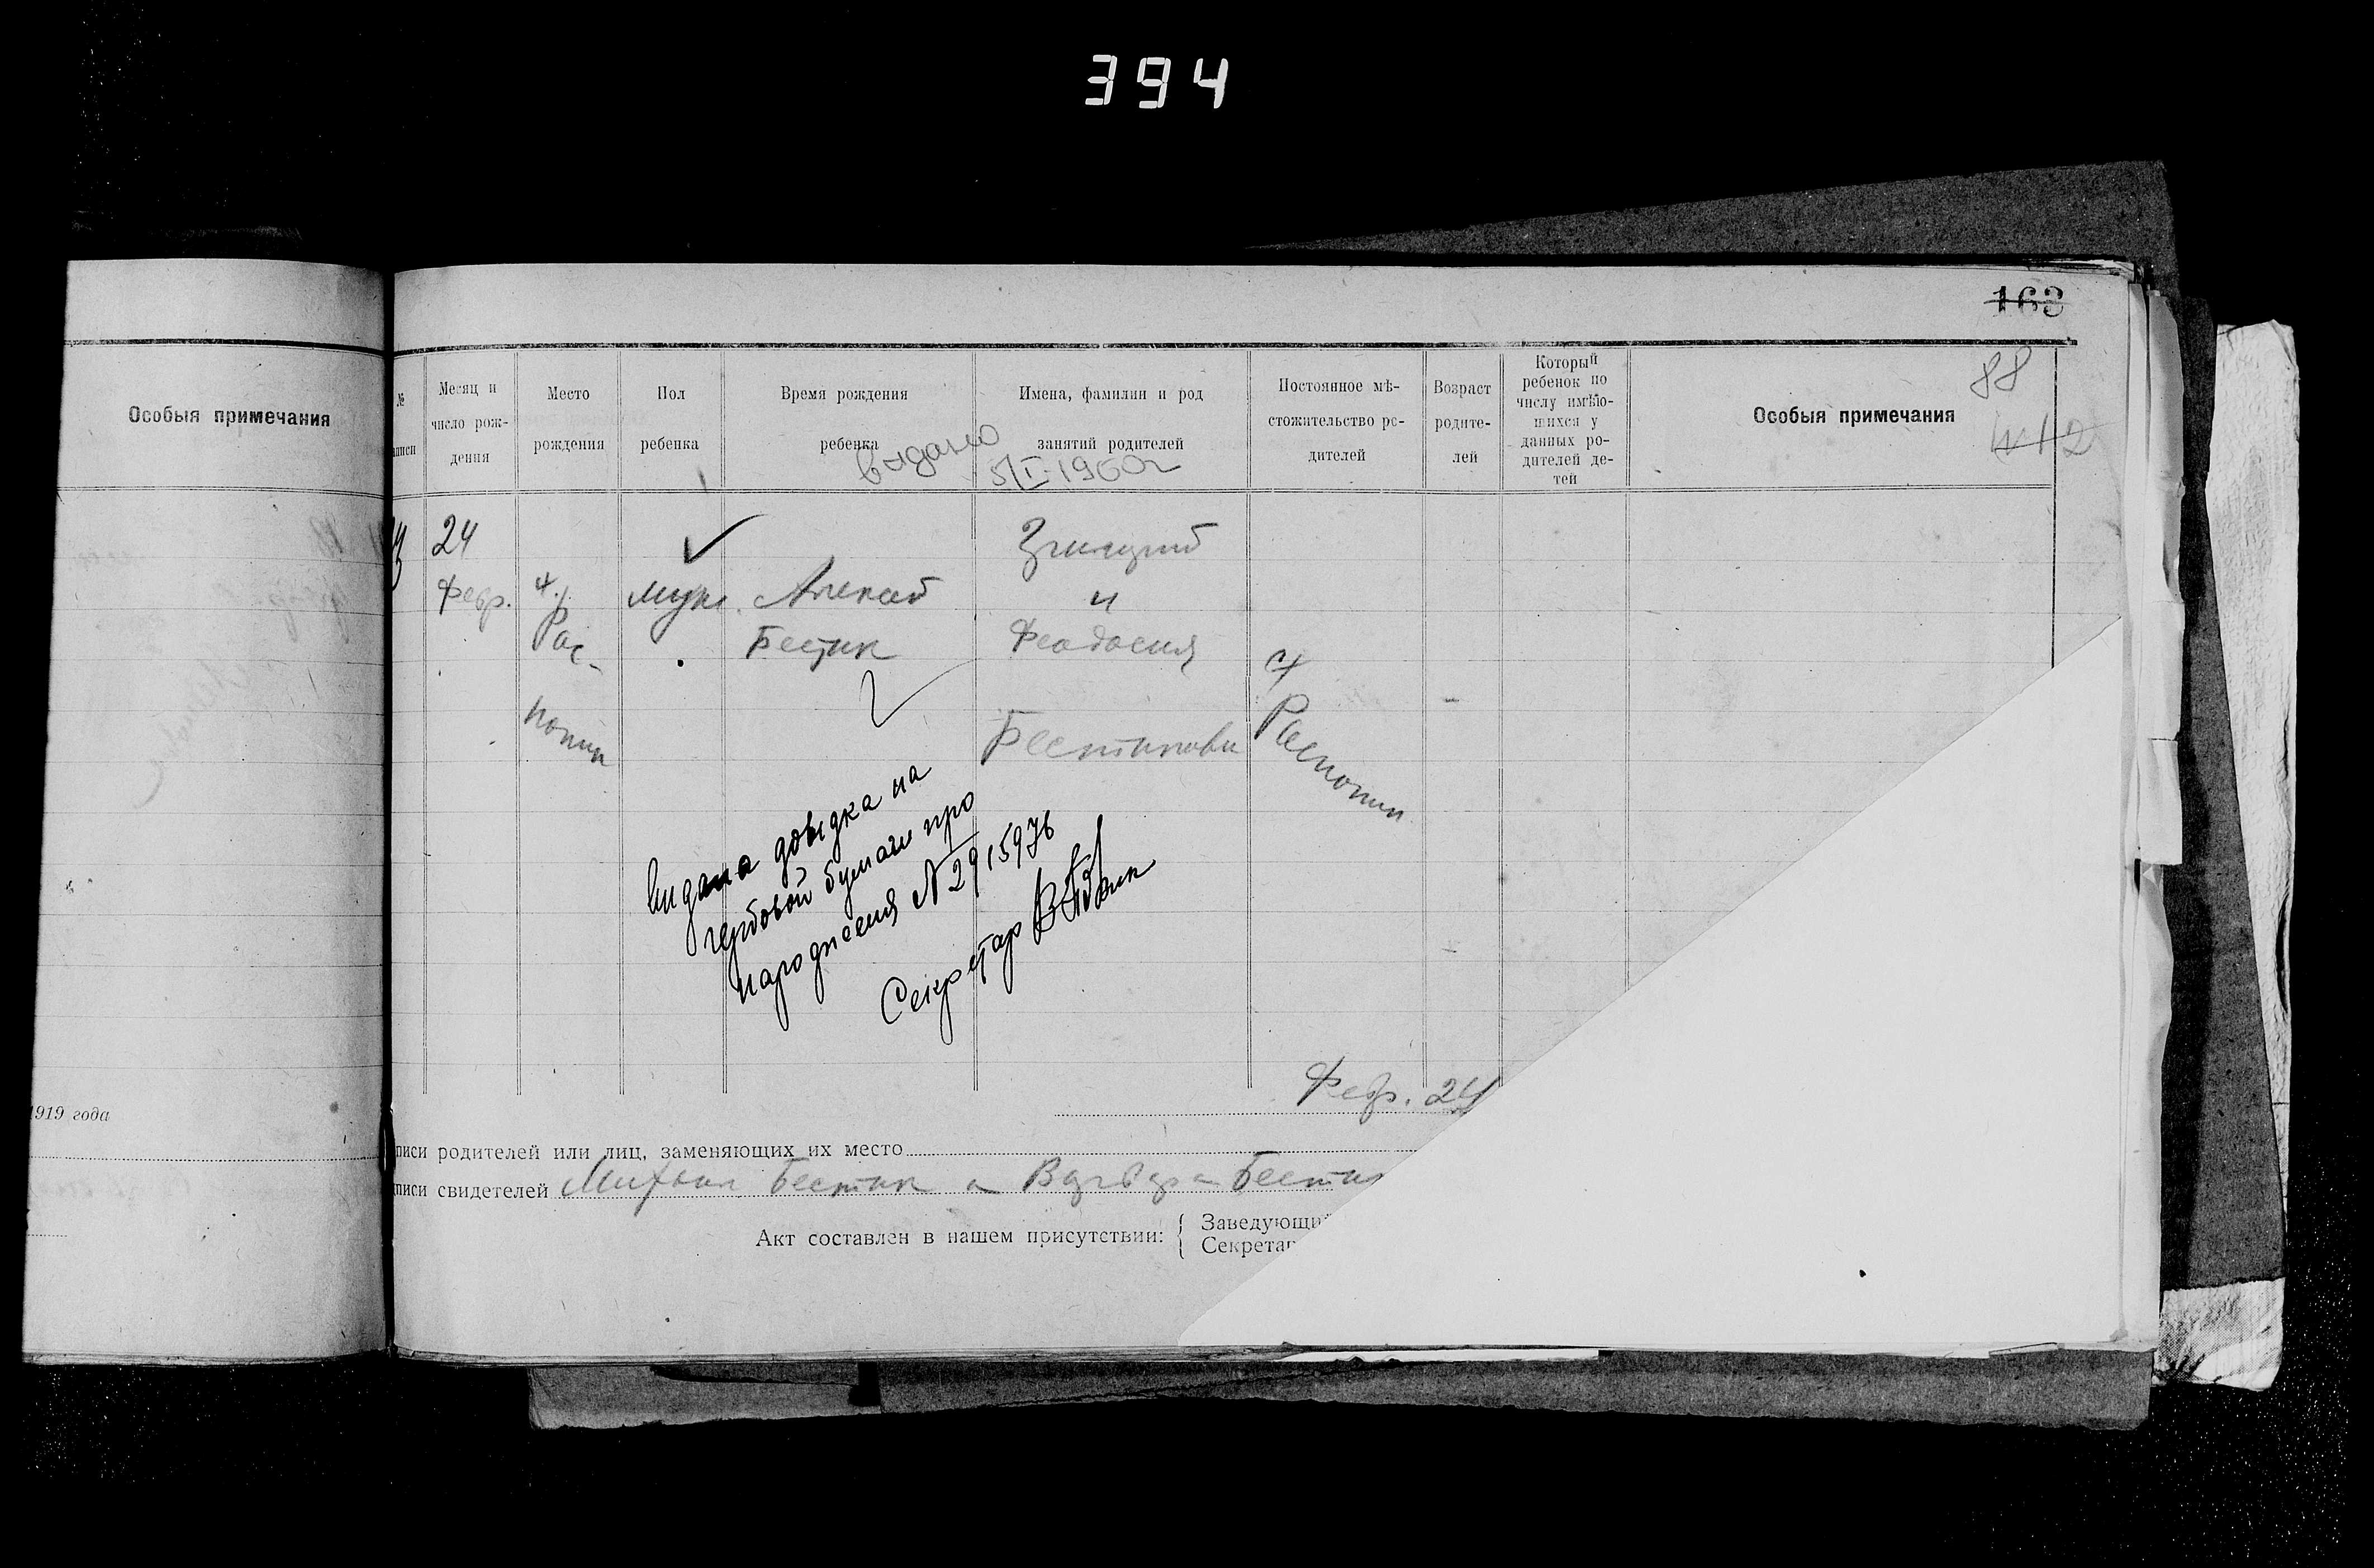 394
163
88
Особыя примечания
№
аписи
Месяц и
число рож-
дения
Место
рождения
Пол
ребенка
Время рождения
ребенка
Имена, фамилии и род
занятий родителей
Постоянное мѣ-
стожительство ро-
дителей
Возраст
родите-
лей
Который
ребенок по
числу имѣю-
щихся у
данных ро-
дителей де-
тей
Особыя примечания
выдано
5/I-1960г
24
Февр.
Рас-
попин
муж. Алексей
Бестик
и
Феодосия
Бестикови
с
Распопин
Видана довідка на
гербовой бумаги про
народження N 2915976
Секретар
Февр. 24
1919 года
писи родителей или лиц, заменяющих их место
писи свидетелей Михаил Бестик и Варвара Бести
Акт составлен в нашем присутствии:
Заведующий
Секретар